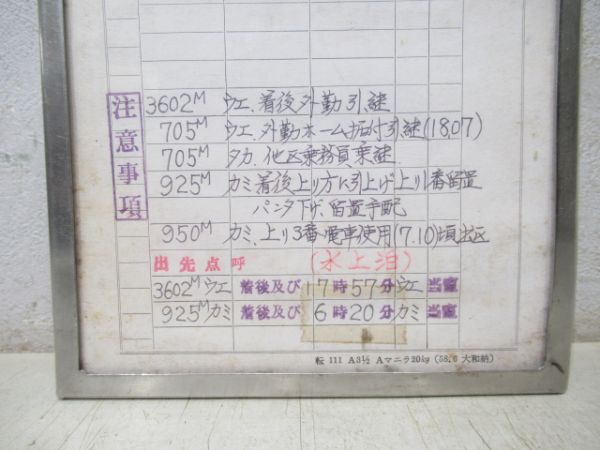 注意事項
3602M ウエ、着後外勤引継
705M ウエ、外勤ホーム据付引継(18,07)
705M タカ、他区乗務員乗継
925M カミ着後上り方に引上げ上り1番留置
パンタ下げ、留置手配
950M カミ、上り3番、電車使用(7.10)頃出区
出先点呼 (水上泊)
3602Mウエ 着後及び 17時57分ウエ 当直
925Mカミ 着後及び 6時20分カミ 当直
転 111 A3½ Aマニラ20kg (58.6 大和納)